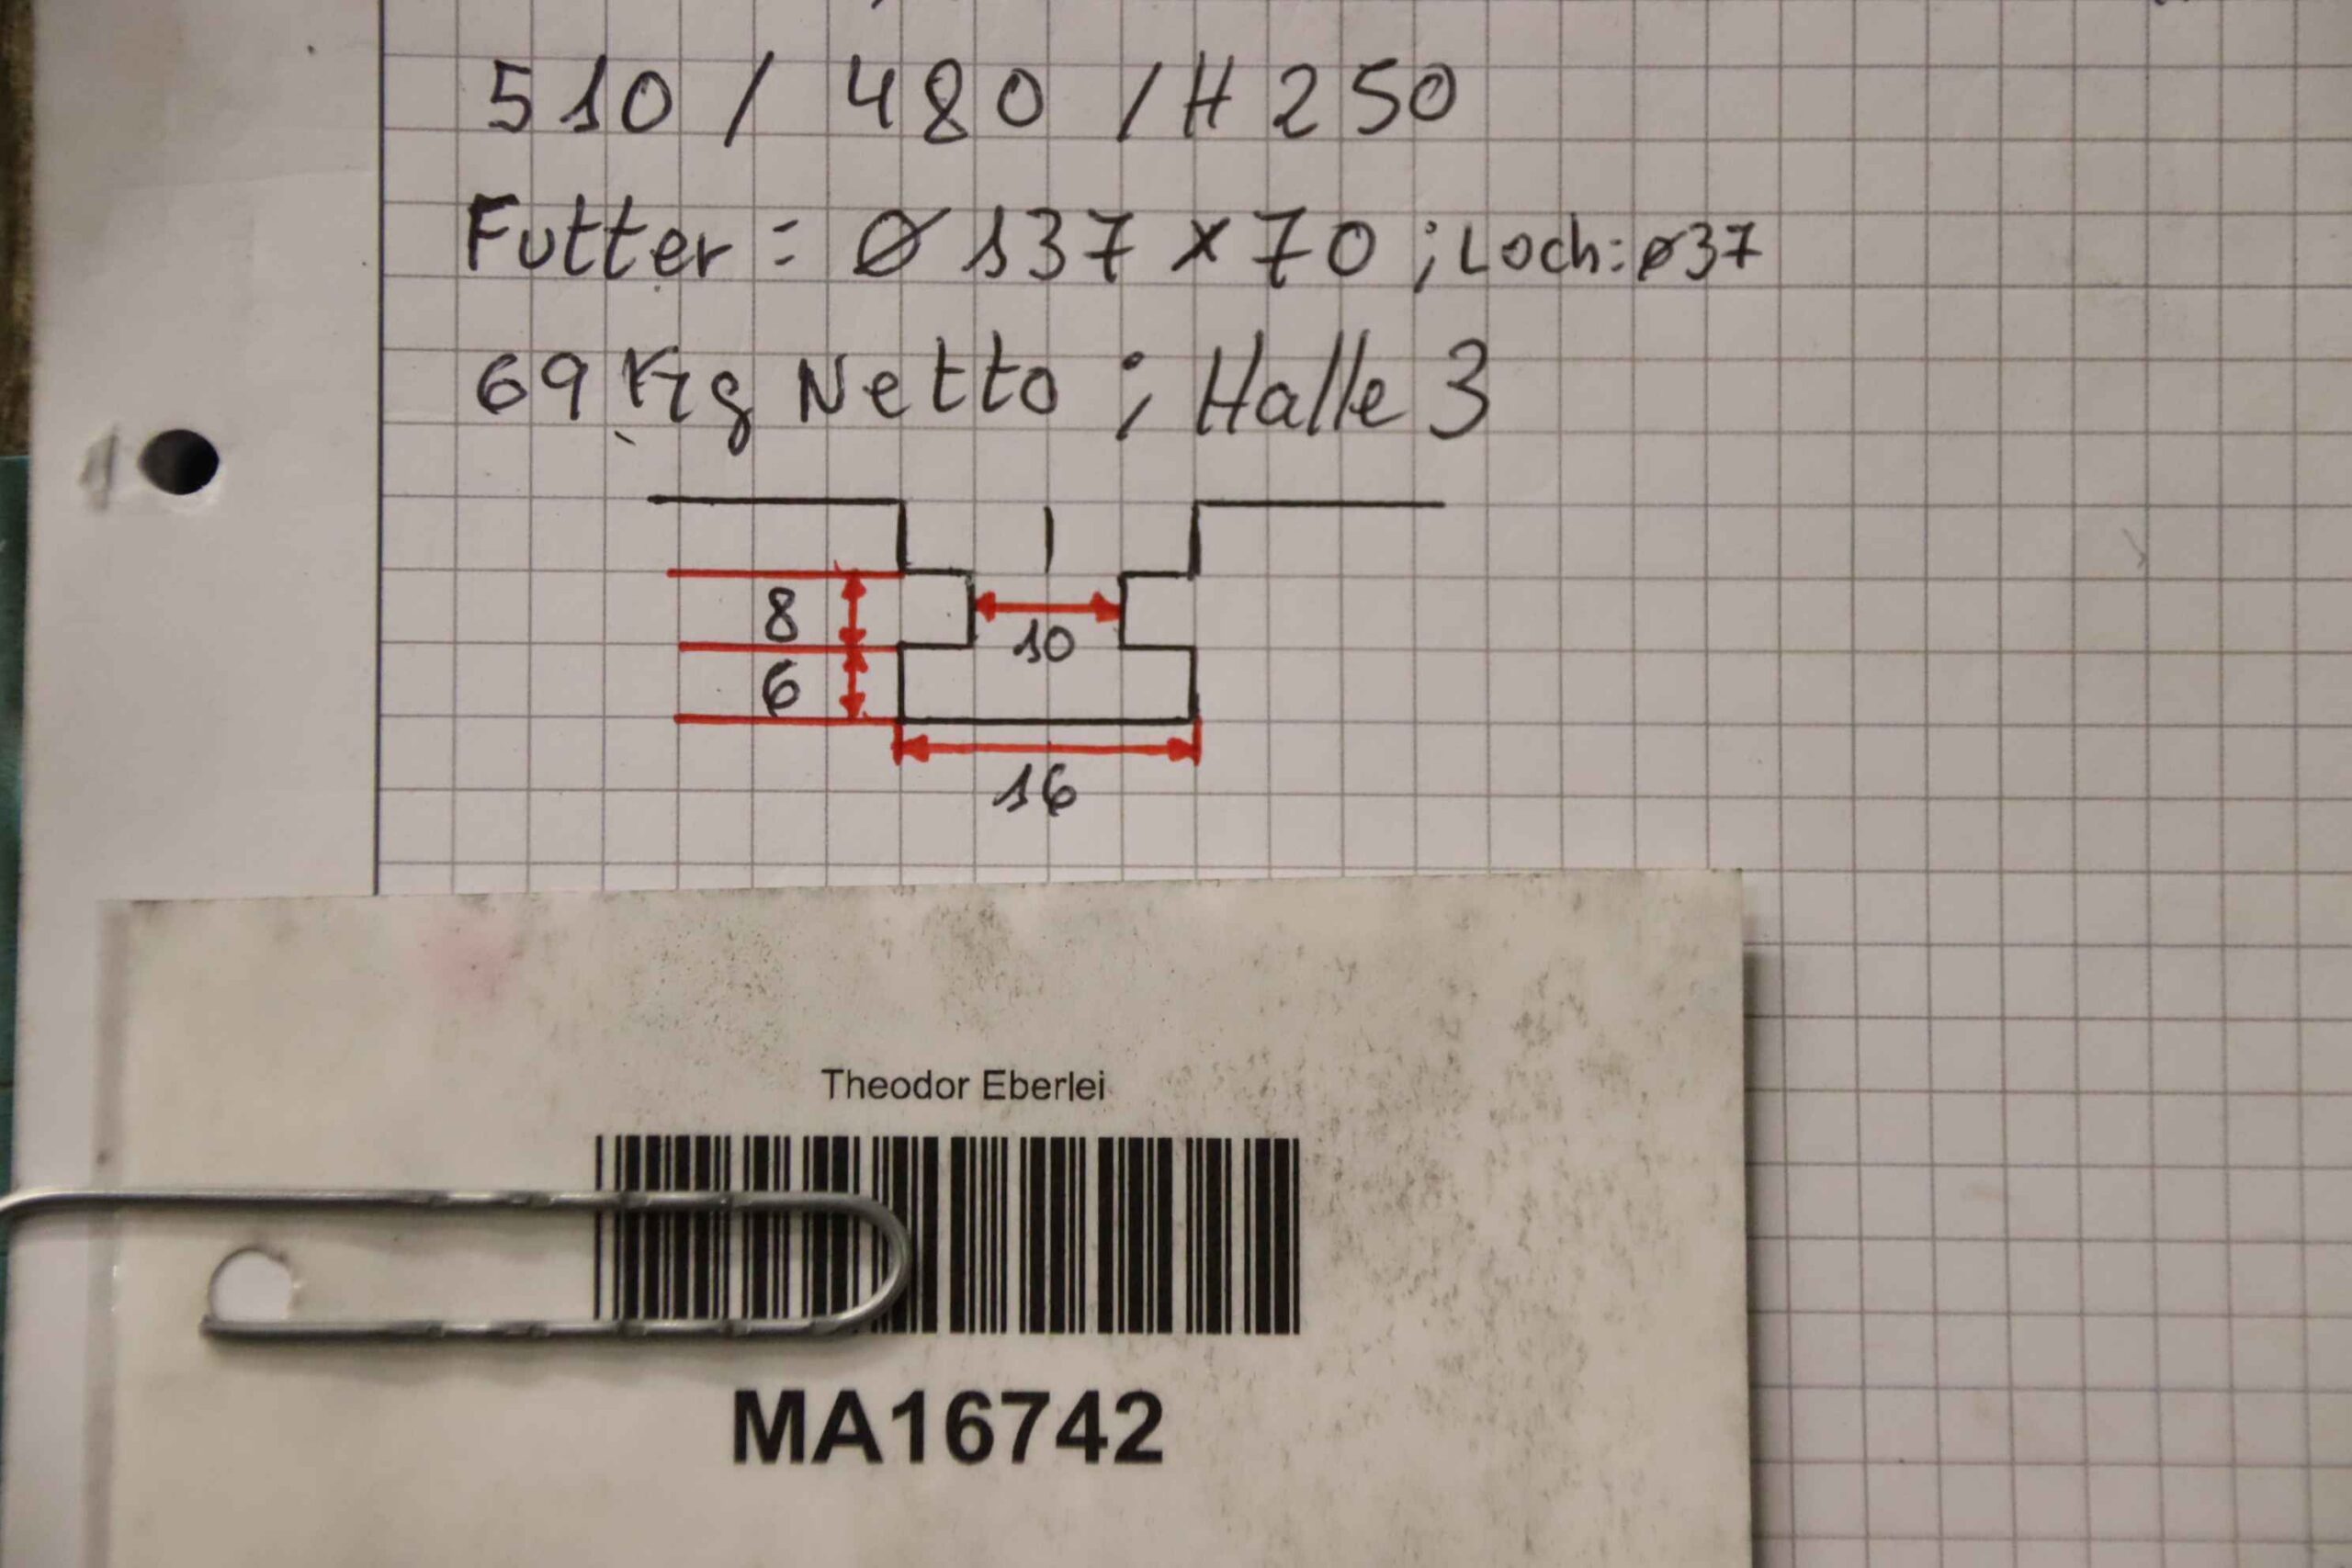 510 / 480 / H 250
Futter = Ø 137 x 70 ; Loch: Ø37
69 Kg Netto ; Halle 3
8
10
6
16
Theodor Eberlei
MA16742